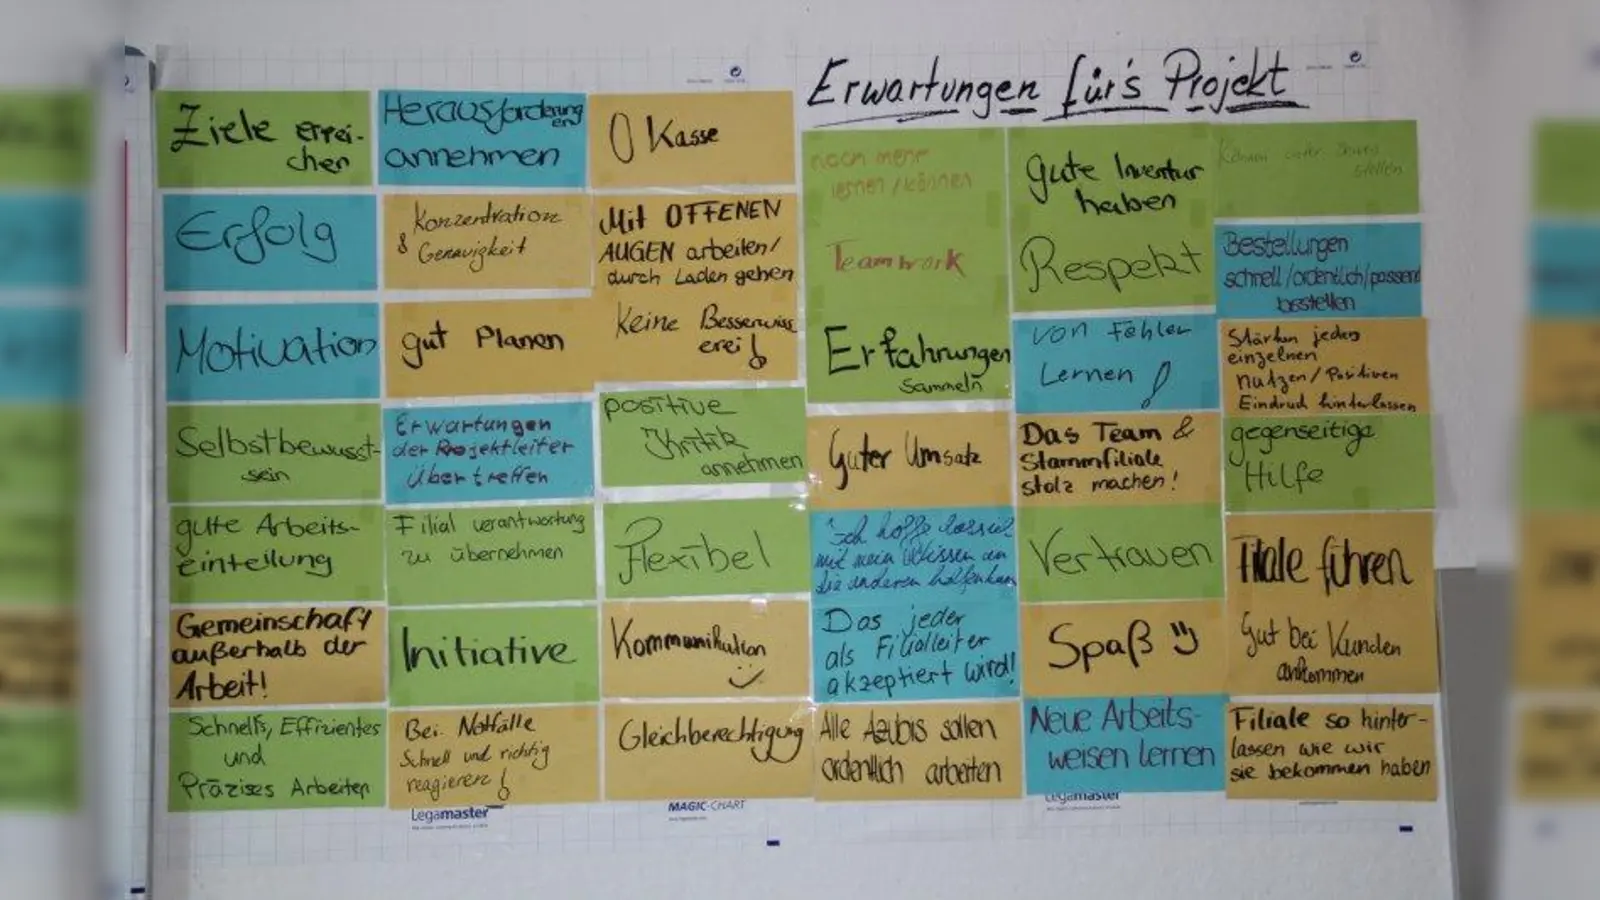 Erwartungen für's Projekt
Ziele errei-
chen
Herausforderung
en
annehmen
0 Kasse
Erfolg
Konzentration
& Genauigkeit
Mit OFFENEN
AUGEN arbeiten/
durch Laden gehen
Motivation
gut Planen
Keine Besserwiss
erei!
Selbstbewusst-
sein
Erwartungen
der Projektleiter
Übertreffen
positive
Kritik
annehmen
gute Arbeits-
einteilung
Filial verantwortung
zu übernehmen
Flexibel
Gemeinschaft
außerhalb der
Arbeit!
Initiative
Kommunikation
Schnells, Effizientes
und
Präzises Arbeiten
Bei Notfälle
Schnell und richtig
reagieren!
Gleichberechtigung
noch mehr
lernen/können
Gute Inventur
haben
Können unter Beweis
stellen
Teamwork
Respekt
Bestellungen
schnell/ordentlich/passend
bestellen
Erfahrungen
sammeln
von Fehler
Lernen!
Stärken jedes
einzelnen
nutzen/Positiven
Eindruck hinterlassen
Guter Umsatz
Das Team &
Stammfiliale
stolz machen!
gegenseitige
Hilfe
Ich hoffe dass ich
mit mein Wissen an
die anderen helfen kann
Vertrauen
Filiale führen
Das jeder
als Filialleiter
akzeptiert wird!
Spaß
Gut bei Kunden
ankommen
Alle Azubis sollen
ordentlich arbeiten
Neue Arbeits-
weisen lernen
Filiale so hinter-
lassen wie wir
sie bekommen haben
Legamaster
MAGIC-CHART
Legamaster